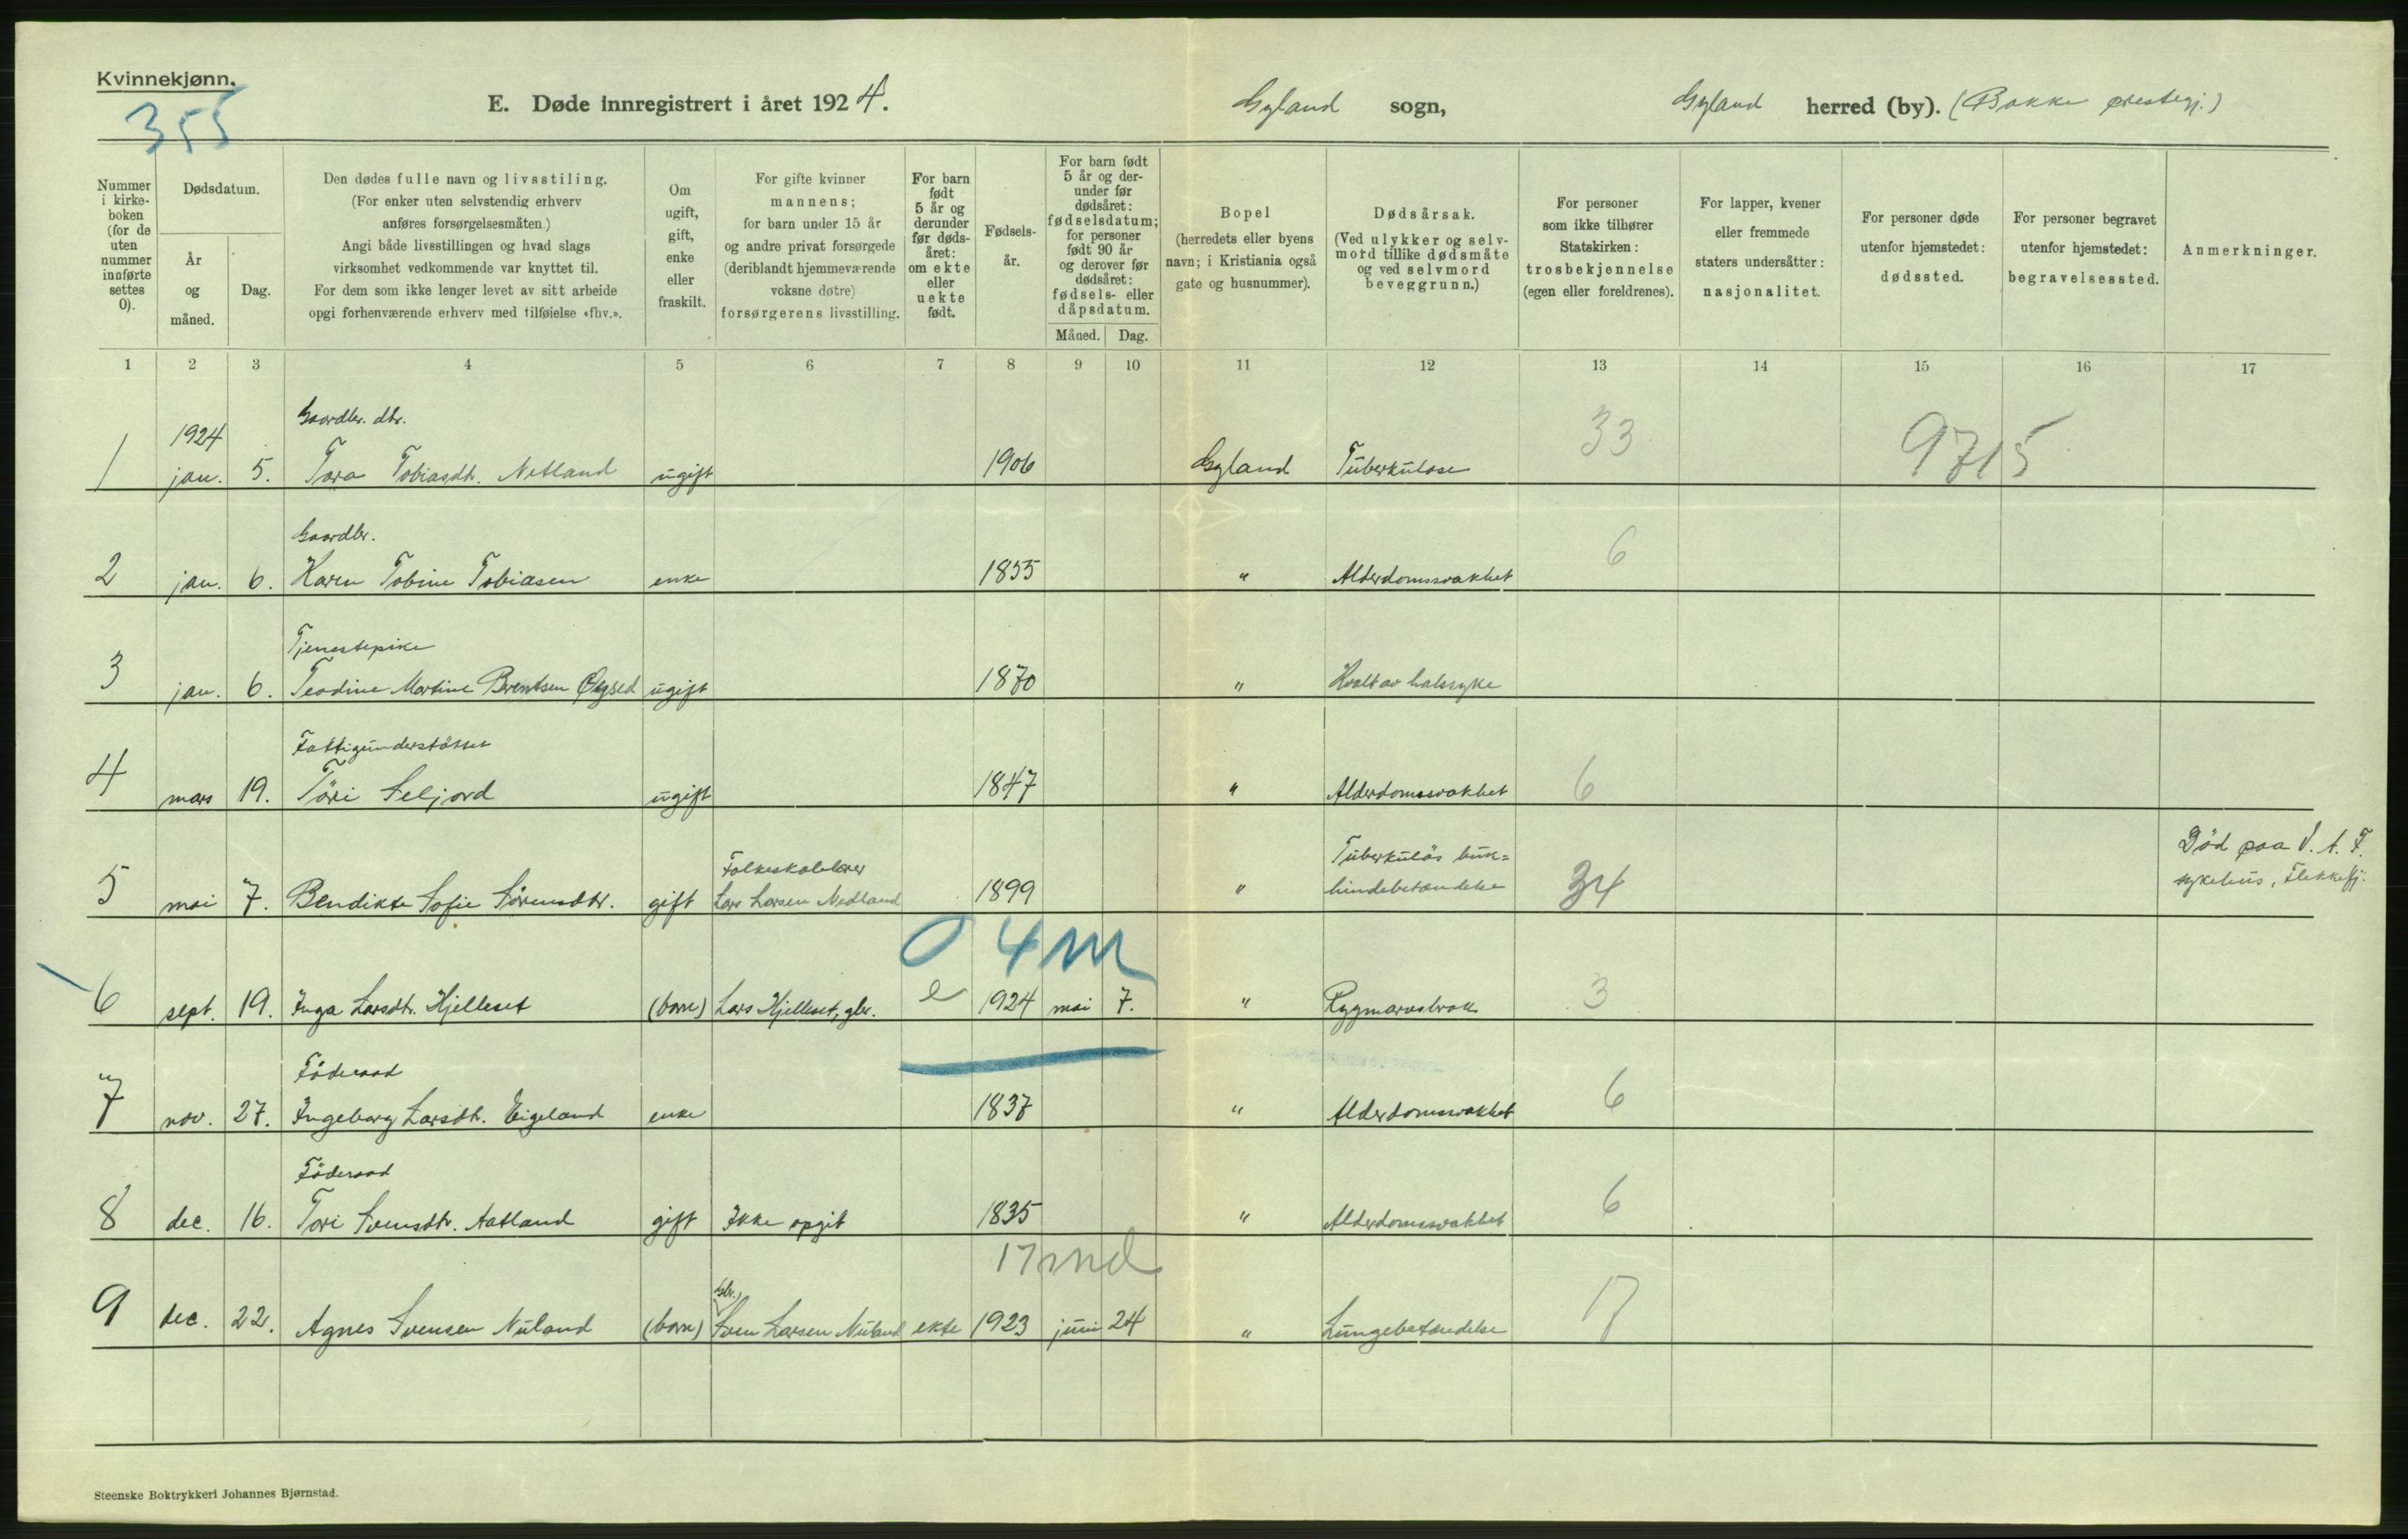 Kvinnekjønn.
355
E. Døde innregistrert i året 1924.
Gyland sogn,
Gyland herred (by). (Bakke prestegj.)
Nummer i kirke-boken (for de uten nummer innførte settes 0).
Dødsdatum.
År og måned.
Dag.
Den dødes fulle navn og livsstiling.
(For enker uten selvstendig erhverv
anføres forsørgelsesmåten.)
Angi både livsstillingen og hvad slags
virksomhet vedkommende var knyttet til.
For dem som ikke lenger levet av sitt arbeide
opgi forhenværende erhverv med tilføielse «fhv.».
Om
ugift,
gift,
enke
eller
fraskilt.
For gifte kvinner
mannens;
for barn under 15 år
og andre privat forsørgede
(deriblandt hjemmeværende
voksne døtre)
forsørgerens livsstilling.
For barn
født
5 år og
derunder
før døds-
året:
om ekte
eller
uekte
født.
Fødsels-
år.
For barn født
5 år og der-
under før
dødsåret:
fødselsdatum;
for personer
født 90 år
og derover før
dødsåret:
fødsels- eller
dåpsdatum.
Måned. Dag.
Bopel
(herredets eller byens
navn; i Kristiania også
gate og husnummer).
Dødsårsak.
(Ved ulykker og selv-
mord tillike dødsmåte
og ved selvmord
beveggrunn.)
For personer
som ikke tilhører
Statskirken:
trosbekjennelse
(egen eller foreldrenes).
For lapper, kvener
eller fremmede
staters undersåtter:
nasjonalitet.
For personer døde
utenfor hjemstedet:
dødssted.
For personer begravet
utenfor hjemstedet:
begravelsessted.
Anmerkninger.
1 2 3 4 5 6 7 8 9 10 11 12 13 14 15 16 17
Gaardbr. dtr.
1 1924 jan. 5. Tora Tobiasdtr. Netland ugift 1906 Gyland Tuberkulose 33 9715
Gaardbr.
2 jan. 6. Karen Tobine Tobiasen enke 1855 " Alderdomssvakhet 6
Tjenestepike
3 jan. 6. Teodine Martine Berentsen Øysed ugift 1870 " Kvalt av halssyke
Fattigunderstöttet
4 mars 19. Töri Seljord ugift 1847 " Alderdomssvakhet 6
Folkeskolelærer Tuberkulös buk= Död paa V. A. F.
5 mai 7. Bendikte Sofie Sörensdtr. gift Lars Larsen Nedland 1899 " hindebetændelse 34 sykehus, Flekkefj.
0 4 m
6 sept. 19. Inga Larsdtr. Hjelleset (barn) Lars Hjelleset, gbr. e 1924 mai 7. " Rygmarvsbrok 3
Föderaad
7 nov. 27. Ingeborg Larsdtr. Eigeland enke 1837 " Alderdomssvakhet 6
Föderaad
8 dec. 16. Tori Svensdtr. Aatland gift Ikke opgit 1835 " Alderdomssvakhet 6
17 md
Gbr.
9 dec. 22. Agnes Svensen Nuland (barn) Sven Larsen Nuland ekte 1923 juni 24 " Lungebetændelse 17
Steenske Boktrykkeri Johannes Bjørnstad.